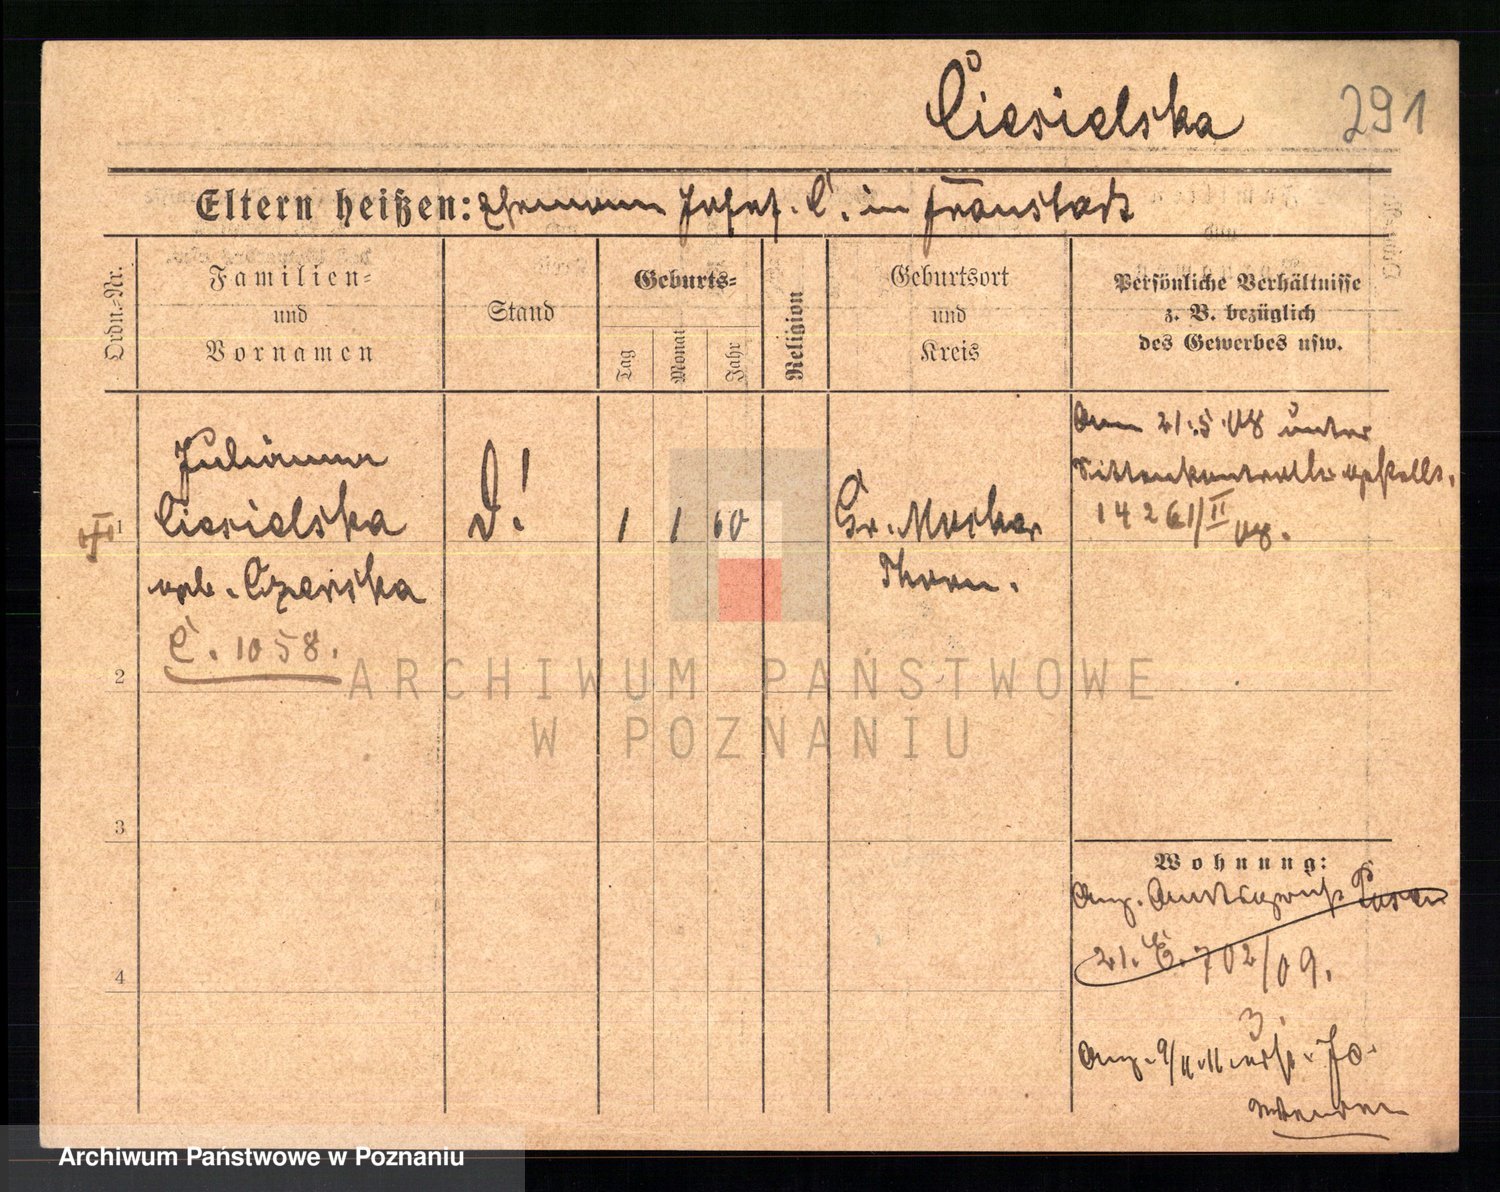 Ciesielska
291
Eltern heißen: Ehemann Josef C. in Fraustadt
Ordn.-Nr.
Familien-
und
Vornamen
Stand
Geburts-
Tag
Monat
Jahr
Religion
Geburtsort
und
Kreis
Persönliche Verhältnisse
z. B. bezüglich
des Gewerbes usw.
1
Julianna
Ciesielska
geb. Czerska
C. 1058.
D!
1 1 60
Gr. Mocker
Thorn.
Am 21.5.08 unter
Sittenkontrolle gestellt.
14261/II 08.
2
3
4
Wohnung:
Ang. Amtsger. Posen
21. C. 702/09.
3.
Ang. 9/
ARCHIWUM PAŃSTWOWE
W POZNANIU
Archiwum Państwowe w Poznaniu